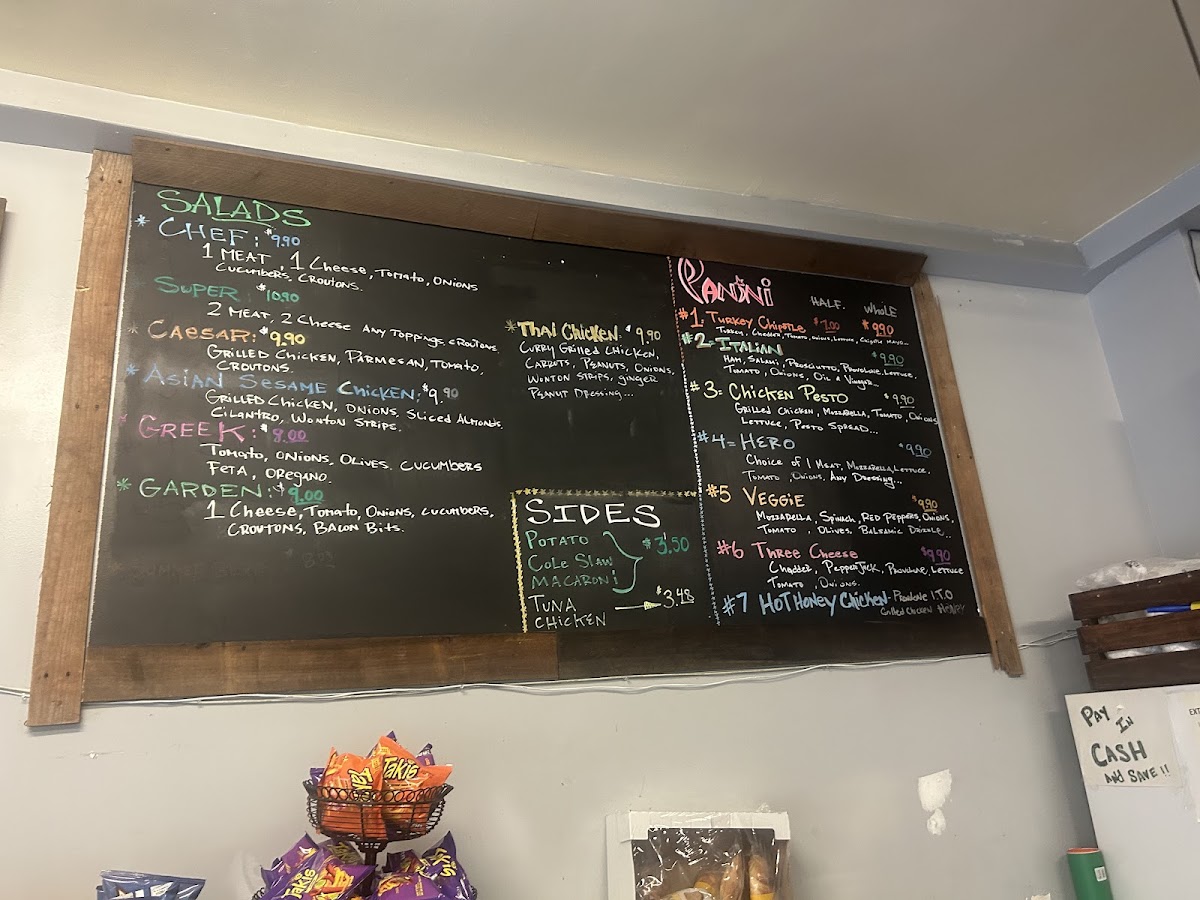 SALADS
* CHEF: $9.90
1 MEAT, 1 Cheese, Tomato, Onions
Cucumbers, Croutons.
SUPER $10.90
2 MEAT, 2 Cheese Any Toppings, croutons.
* CAESAR: $9.90
Grilled Chicken, Parmesan, Tomato,
Croutons.
* ASIAN SESAME CHICKEN: $9.90
Grilled Chicken, Onions, Sliced Almonds,
Cilantro, Wonton Strips.
* GREEK: $9.00
Tomato, Onions, Olives, Cucumbers
Feta, Oregano.
* GARDEN: $9.00
1 Cheese, Tomato, Onions, Cucumbers,
Croutons, Bacon Bits.
* Thai Chicken: $9.90
Curry Grilled Chicken,
Carrots, Peanuts, Onions,
Wonton Strips, Ginger
Peanut Dressing...
SIDES
POTATO
Cole Slaw
MACARONI
$3.50
TUNA
CHICKEN
$3.48
PANINI
HALF. WHOLE
#1. Turkey Chipotle $7.00 $9.90
Turkey, Cheddar, Tomato, Onions, Lettuce, Mayo...
#2- ITALIAN $9.90
Ham, Salami, Prosciutto, Provolone, Lettuce,
Tomato, Onions, Oil & Vinegar...
#3= Chicken Pesto $9.90
Grilled Chicken, Mozzarella, Tomato, Onions
Lettuce, Pesto Spread...
#4= HERO $9.90
Choice of 1 Meat, Mozzarella, Lettuce,
Tomato, Onions, Any Dressing...
#5 VEGGIE $9.90
Mozzarella, Spinach, Red Peppers, Onions,
Tomato, Olives, Balsamic Drizzle..
#6 Three Cheese $9.90
Cheddar, PepperJack, Provolone, Lettuce
Tomato, Onions.
#7 HOT Honey Chicken- Provolone L.T.O
Grilled Chicken
PAY
IN
CASH
AND SAVE!!
Takis
Takis